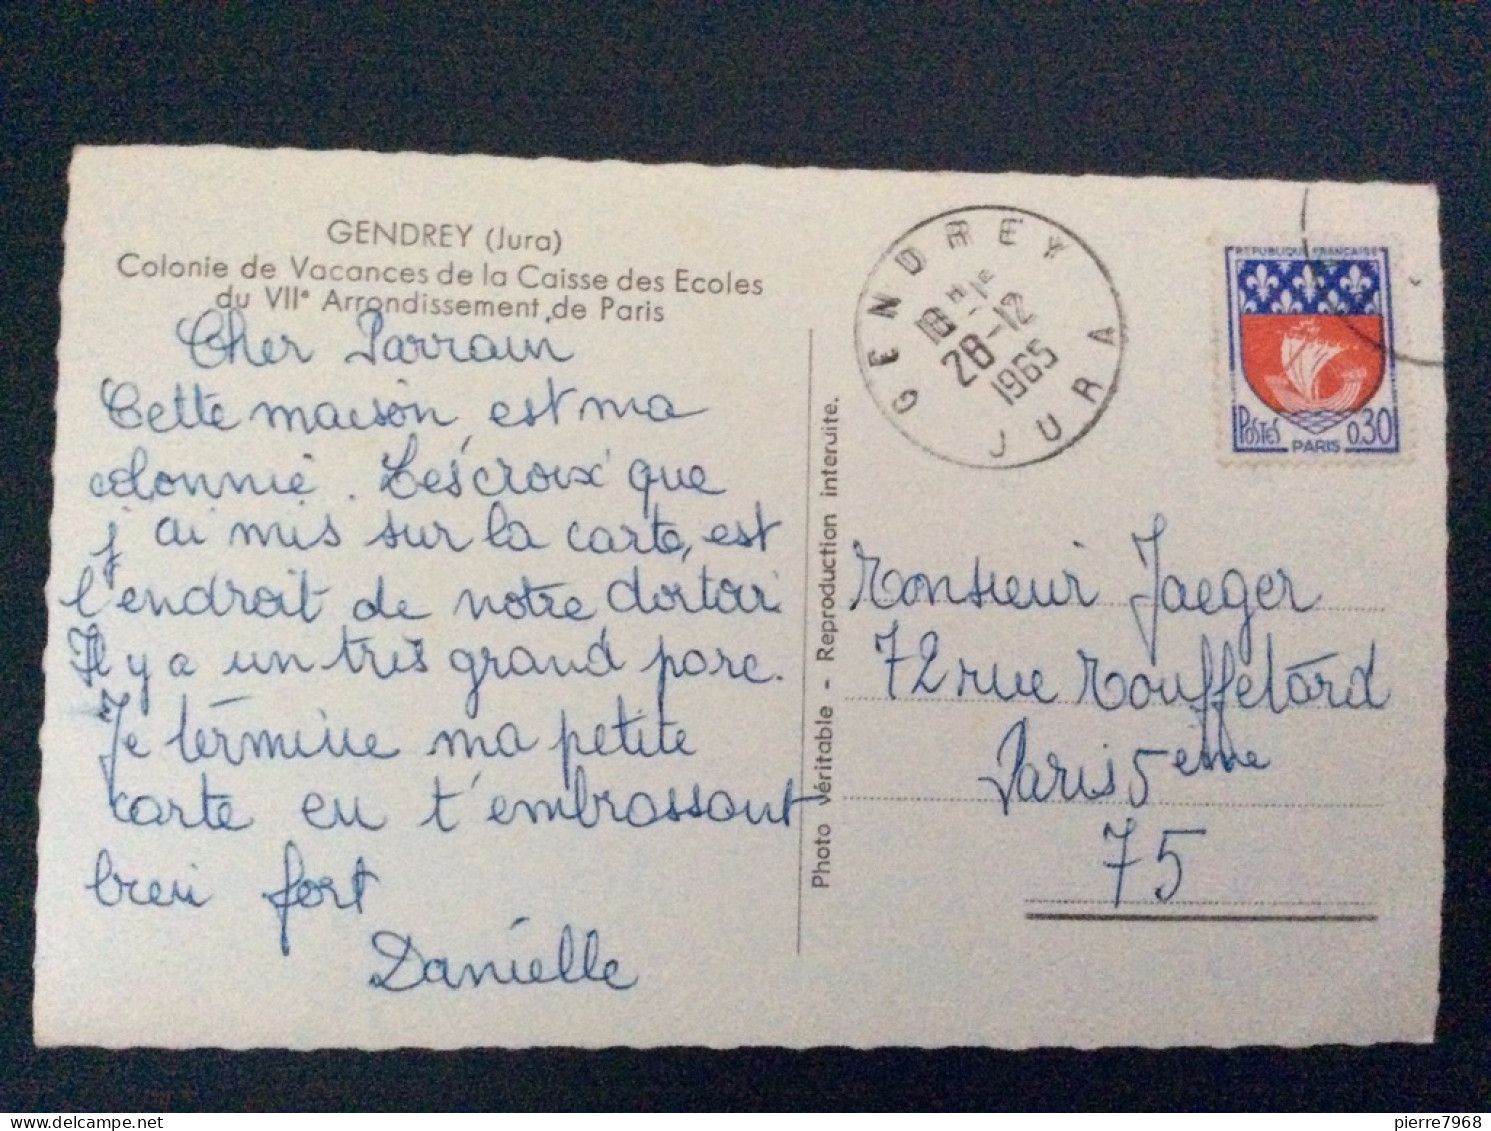 GENDREY (Jura)
Colonie de Vacances de la Caisse des Ecoles
du VIIe Arrondissement de Paris
Cher Parrain
Cette maison, est ma
colonnie. Les croix que
j'ai mis sur la carte, est
l'endroit de notre dortoir
Il y a un très grand parc.
Je termine ma petite
carte en t'embrassant
bien fort
Danielle
Photo véritable - Reproduction interdite.
GENDREY
18H
28-12
1965
JURA
REPUBLIQUE FRANCAISE
POSTES PARIS 0,30
Monsieur Jaeger
72 rue Mouffetard
Paris 5 eme
75
delcampe.net
pierre7968